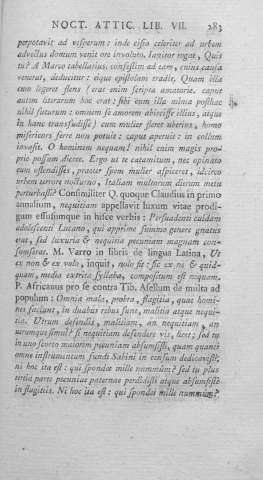 NOCT. ATTIC. LIB. VII. 283
perpotavit ad vesperum: inde cisio celeriter ad urbam
advectus domum venit ore involuto. Janitor rogat, Quis
tu? A Marco tabellarius. confestim ad eam, cujus causa
venerat, deducitur: eique epistolam tradit. Quam illa
cum legeret flens (erat enim scripta amatorie. caput
autem literarum hoc erat: sibi cum illa mima posthac
nihil futurum: omnem se amorem abjecisse illius, atque
in hanc transfudisse) cum mulier fleret uberius, homo
misericors ferre non potuit: caput aperuit: in collum
invasit. O hominem nequam! nihil enim magis pro-
prio possum dicere. Ergo ut te catamitum, nec opinato
cum ostendisses, praeter spem mulier aspiceret, idcirco
urbem terrore nocturno, Italiam multorum dierum metu
perturbasti? Consimiliter Q. quoque Claudius in primo
annalium, nequitiam appellavit luxum vitae prodi-
gum effusumque in hisce verbis: Persuadenti cuidam
adolescenti Lucano, qui apprime summo genere gnatus
erat, sed luxuria & nequitia pecuniam magnam con-
sumserat. M. Varro in libris de lingua Latina, Ut
ex non & ex volo, inquit, nolo fit: sic ex ne & quid-
quam, media extrita syllaba, compositum est nequam.
P. Africanus pro se contra Tib. Asellum de multa ad
populum: Omnia mala, probra, flagitia, quae homi-
nes faciunt, in duabus rebus sunt, malitia atque nequi-
tia. Utrum defendis, malitiam, an nequitiam, an
utrumque simul? si nequitiam defendere vis, licet; sed tu
in uno scorto majorem pecuniam absumsisti, quam quanti
omne instrumentum fundi Sabini in censum dedicavisti:
ni hoc ita est: qui spondet mille nummûm? sed tu plus
tertia parte pecuniae paternae perdidisti atque absumsisti
in flagitiis. Ni hoc ita est: qui spondet mille nummûm?